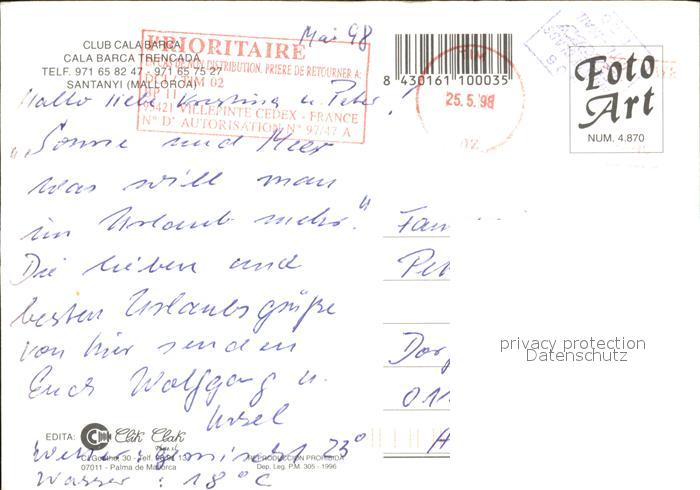 Mai 98
CLUB CALA BARCA
CALA BARCA TRENCADA
TELF. 971 65 82 47 - 971 65 75 27
SANTANYI (MALLORCA)
PRIORITAIRE
EN CAS DE NON DISTRIBUTION, PRIERE DE RETOURNER A:
TIM 02
BP 11
95421 VILLEPINTE CEDEX - FRANCE
N° D' AUTORISATION N° 97/47 A
8 430161 100035
25.5.98
Foto
Art
NUM. 4.870
Hallo liebe Kristina u. Peter!
"Sonne und Meer
was will man
im Urlaub mehr."
Die lieben und
besten Urlaubsgrüße
von hier senden
Euch Wolfgang u.
Ursel
Wetter: 23°
Wasser: 18°C
Fam
Pet
Dor
011
privacy protection
Datenschutz
EDITA: Clik Clak
07011 - Palma de Mallorca
REPRODUCCION PROHIBIDA
Dep. Leg. P.M. 305 - 1996